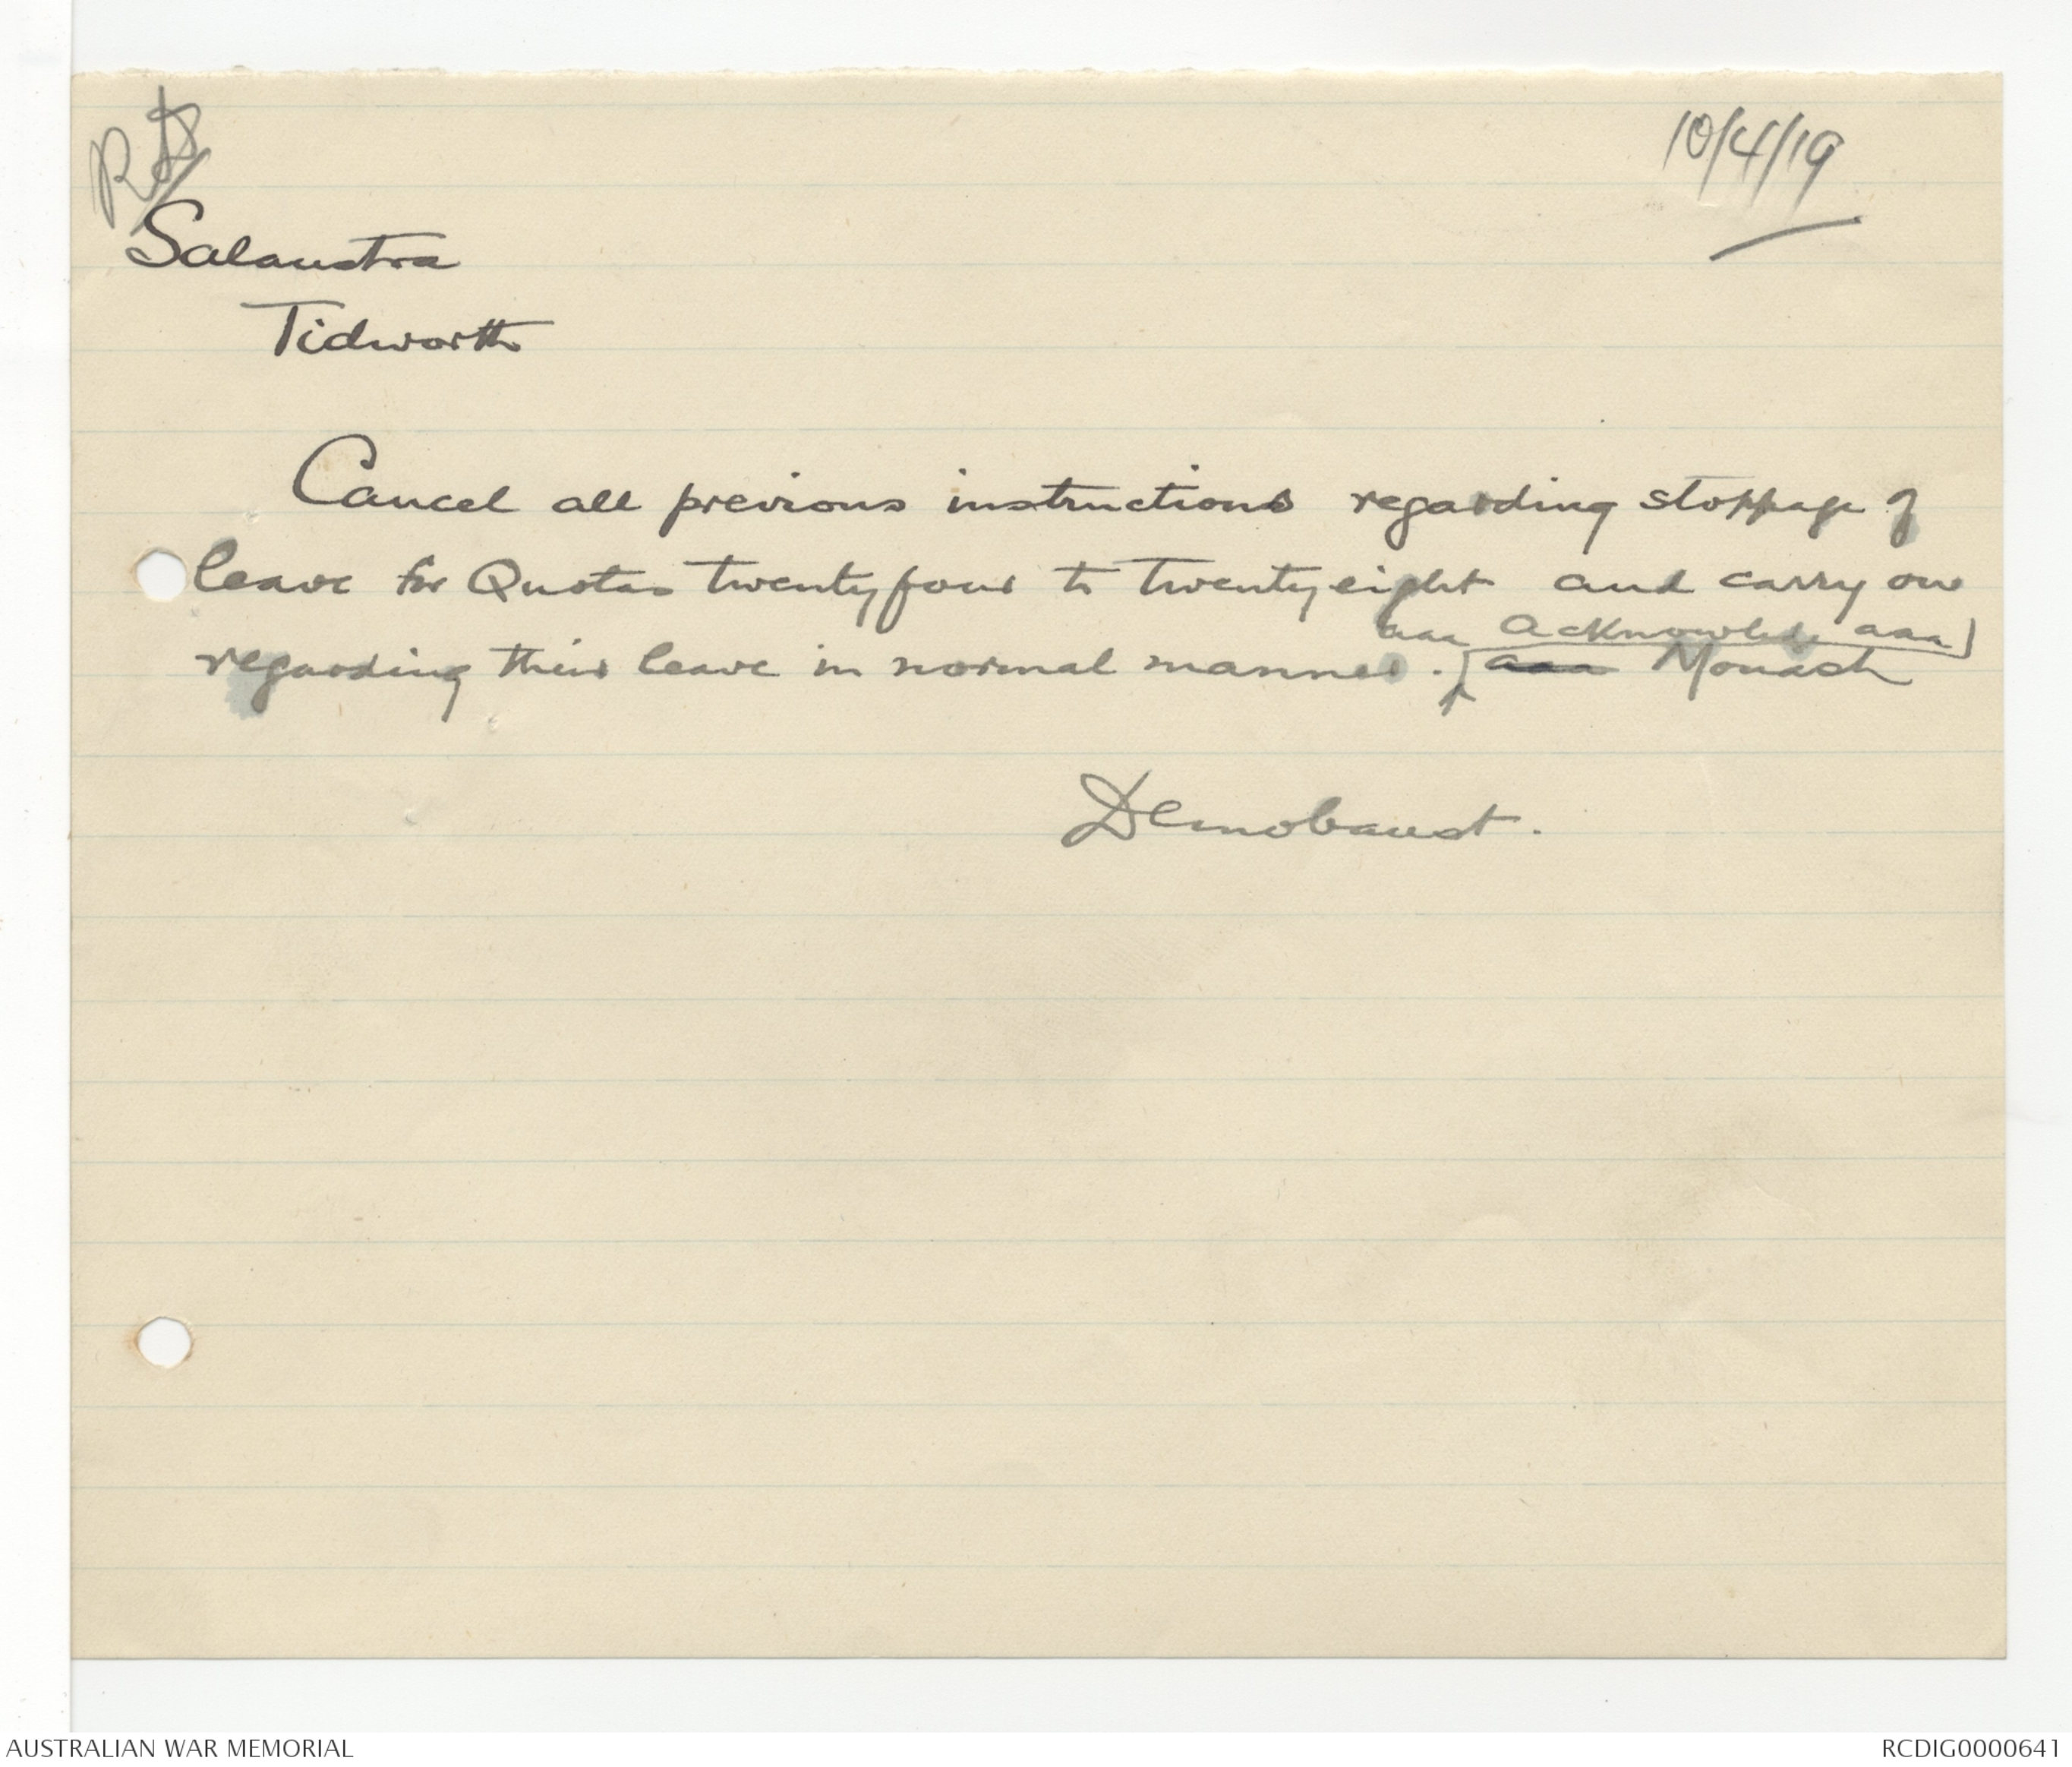 10/4/19
Salaustra
Tidworth
Cancel all previous instructions regarding stoppage of
leave for Quotas twentyfour to twentyeight and carry on
aaa Acknowledge aaa
regarding their leave in normal manner. aaa Monash
Demobaust.
AUSTRALIAN WAR MEMORIAL
RCDIG0000641